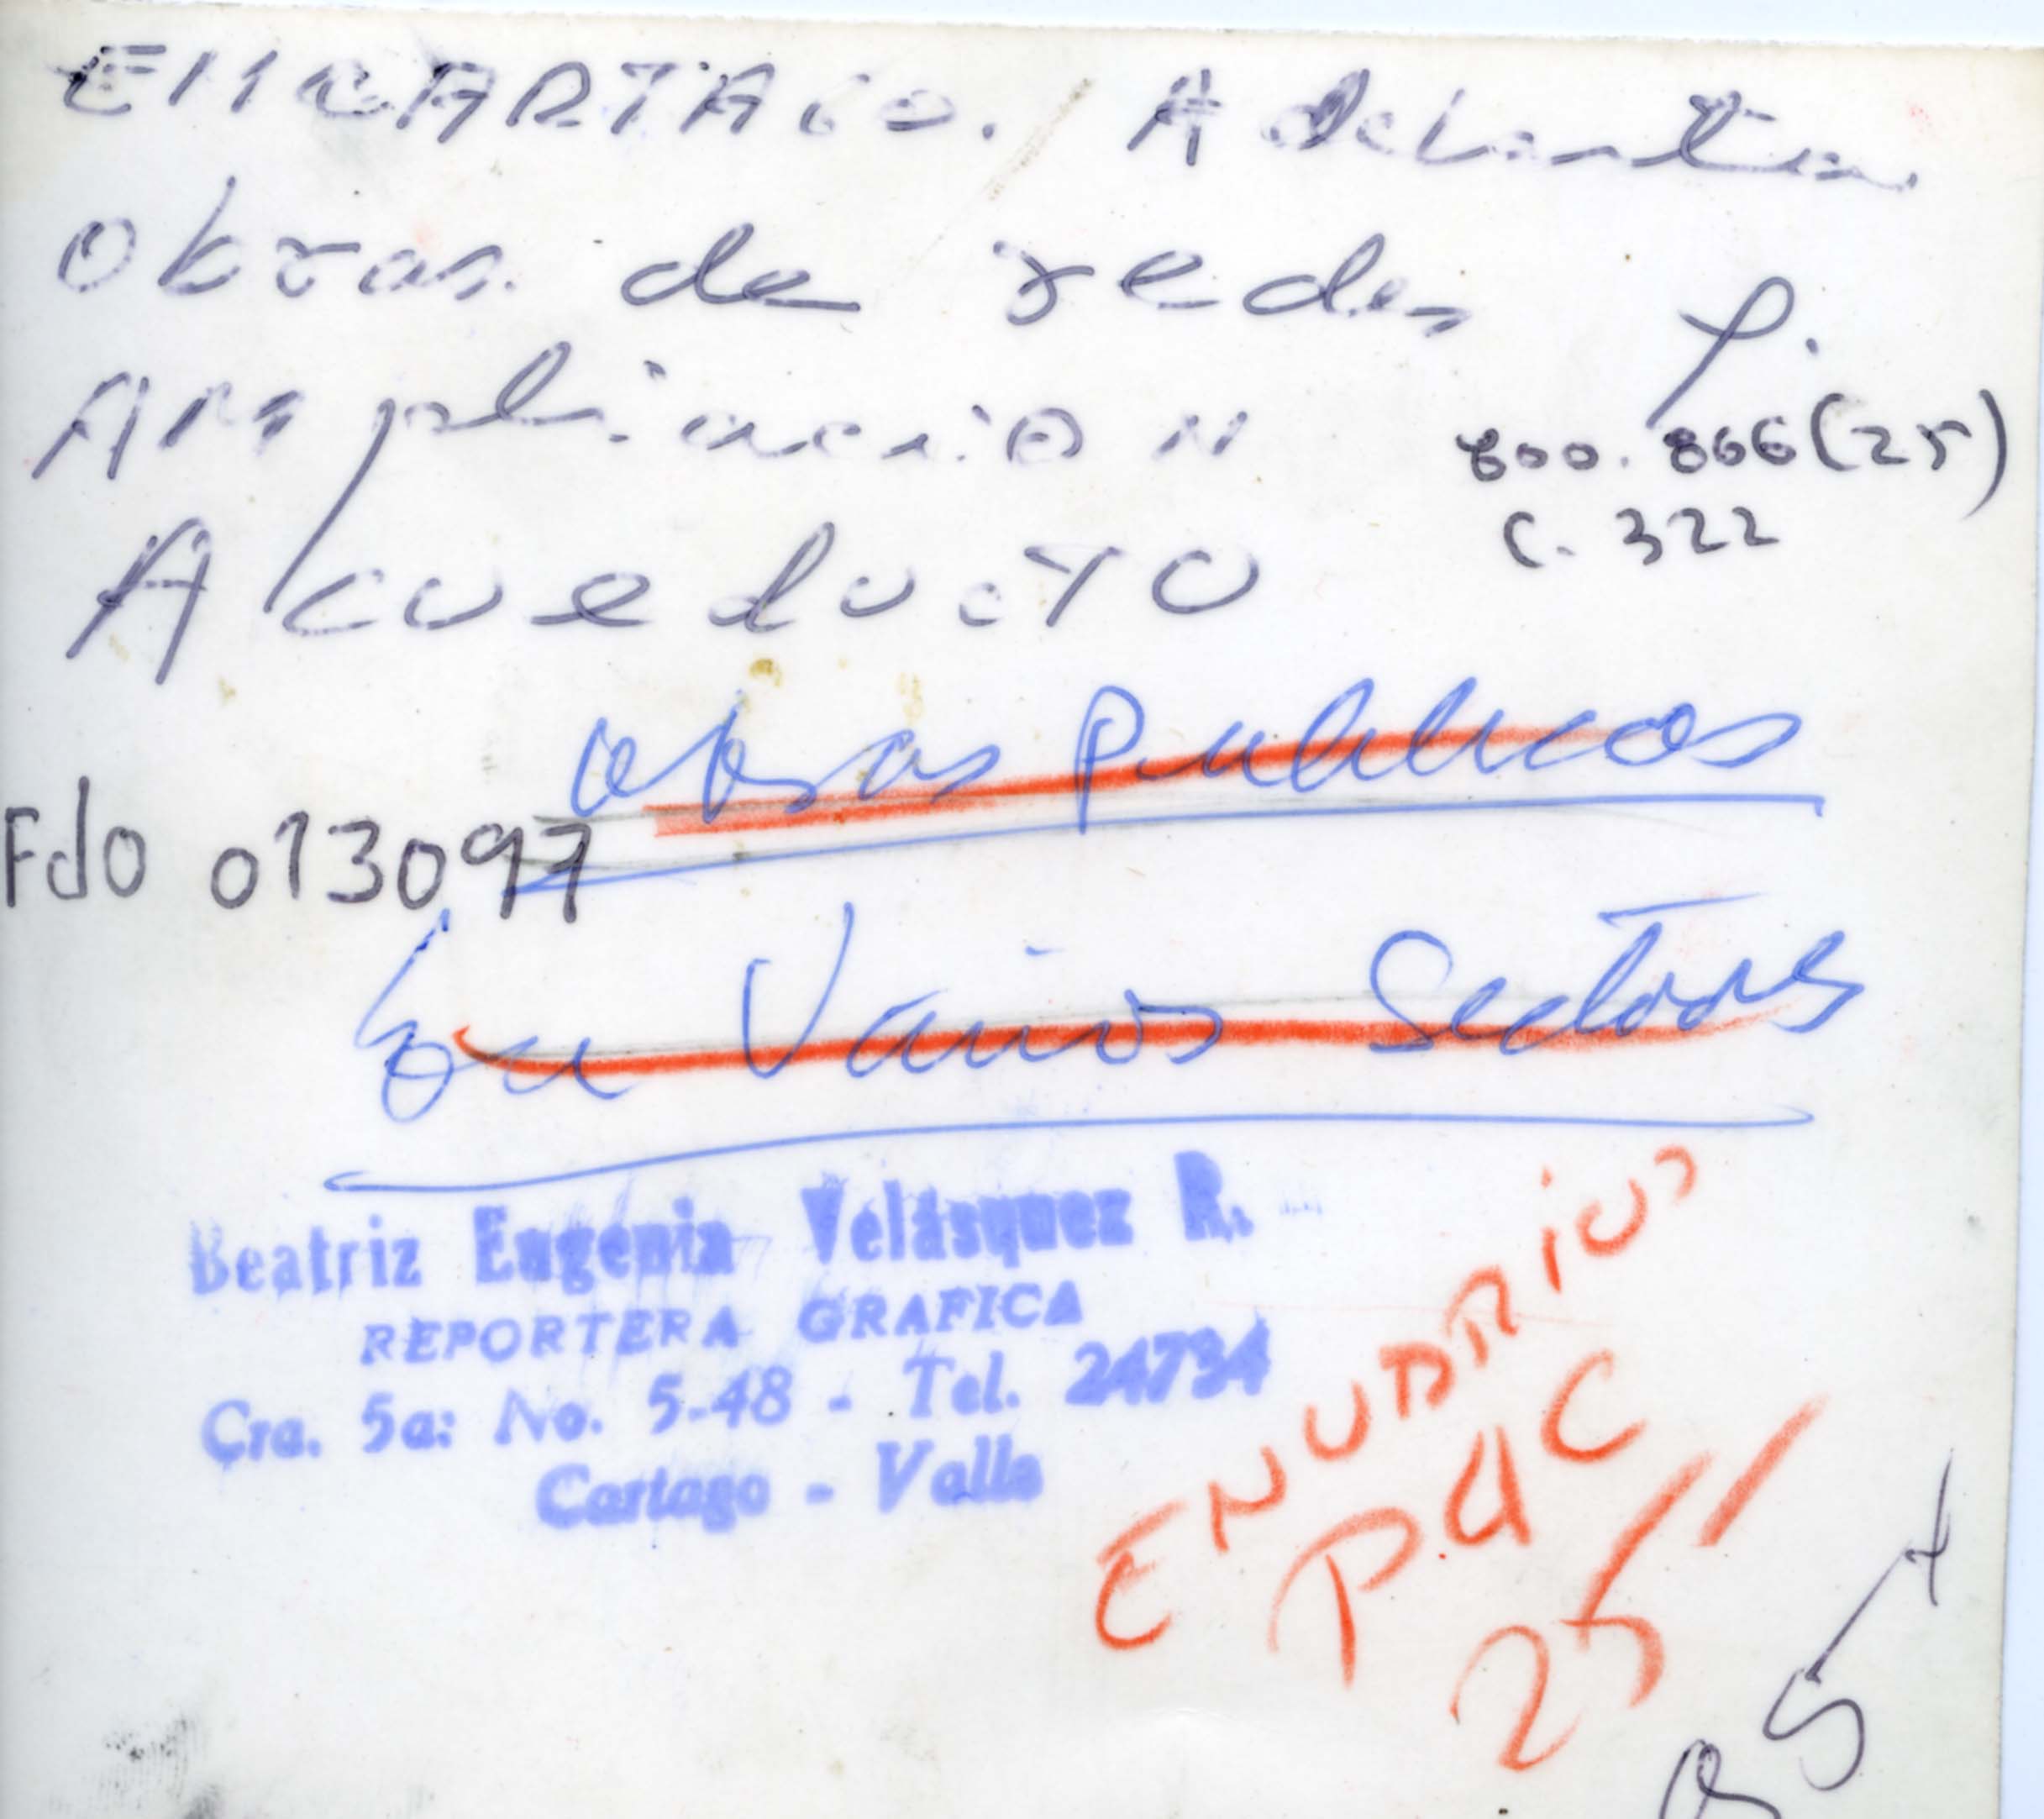 EMCARTAGO. Adelanta
obras de redes
Ampliacion
Acueducto
P.
800.866(25)
C. 322
obras publicas
Fdo 013097
En Varios Sectores
Beatriz Eugenia Velásquez R.
REPORTERA GRAFICA
Cra. 5a: No. 5-48 - Tel. 24734
Cartago - Valle
P4C
25